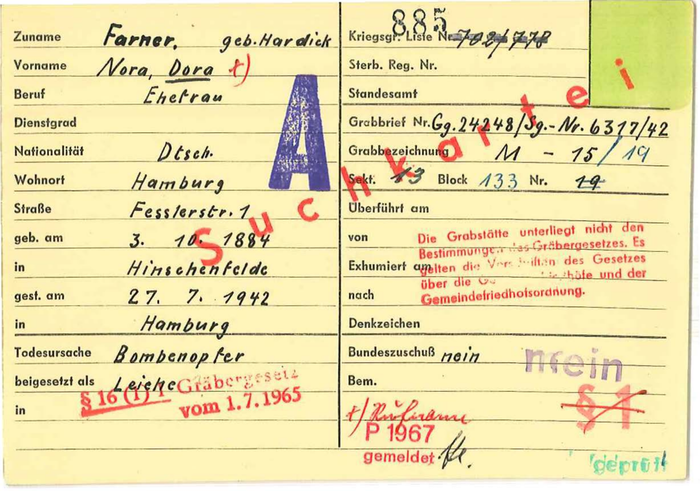 885
Zuname Farner, geb. Hardick
Vorname Nora, Dora x)
Beruf Ehefrau
Dienstgrad
Nationalität Dtsch.
Wohnort Hamburg
Straße Fesslerstr. 1
geb. am 3. 10. 1884
in Hinschenfelde
gest. am 27. 7. 1942
in Hamburg
Todesursache Bombenopfer
beigesetzt als Leiche
in
§ 16 (1) 1 Gräbergesetz
vom 1.7.1965
A
Suchkartei
Kriegsgr. Liste Nr. 702/778
Sterb. Reg. Nr.
Standesamt
Grabbrief Nr. Gg. 24248/Sg.-Nr. 6317/42
Grabbezeichnung M - 15/19
Sekt. 13 Block 133 Nr. 19
Überführt am
von
Exhumiert am
nach
Die Grabstätte unterliegt nicht den
Bestimmungen des Gräbergesetzes. Es
gelten die Vorschriften des Gesetzes
über die und der
Gemeindefriedhofsordnung.
Denkzeichen
Bundeszuschuß nein
nein
Bem.
§ 1
x) Rufname
P 1967
gemeldet
geprüft